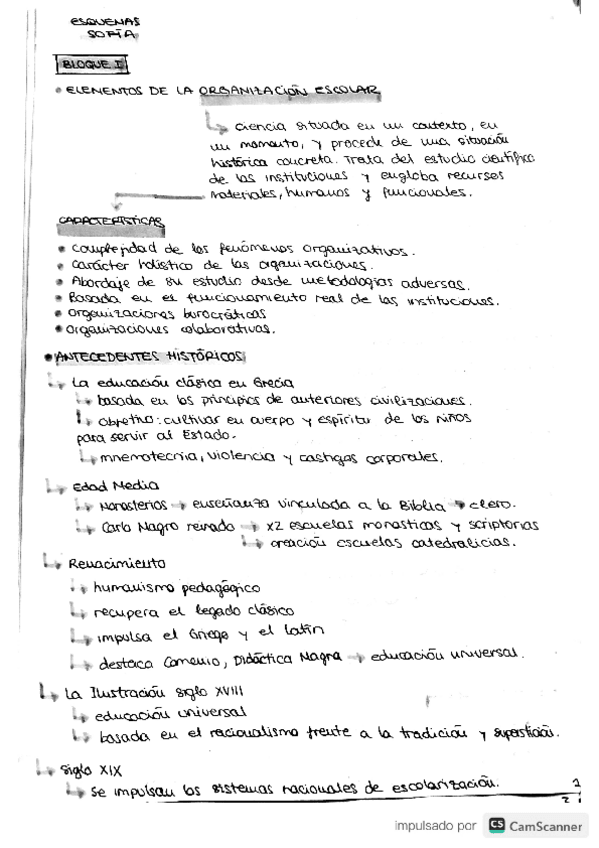 ESQUEMAS
SOFÍA
BLOQUE I
• ELEMENTOS DE LA ORGANIZACIÓN ESCOLAR
↳ ciencia situada en un contexto, en
un momento, y procede de una situación
histórica concreta. Trata del estudio científico
de las instituciones y engloba recursos
materiales, humanos y funcionales.
CARACTERÍSTICAS
• complejidad de los fenómenos organizativos.
• carácter holístico de las organizaciones.
• Abordaje de su estudio desde metodologías adversas.
• Basada en el funcionamiento real de las instituciones.
• organizaciones burocráticas
• organizaciones colaborativas.
• ANTECEDENTES HISTÓRICOS
↳ La educación clásica en Grecia
↳ basada en los principios de anteriores civilizaciones.
↳ objetivo: cultivar en cuerpo y espíritu de los niños
para servir al Estado.
↳ mnemotecnia, violencia y castigos corporales.
↳ Edad Media
↳ Monasterios → enseñanza vinculada a la Biblia → clero.
↳ Carlo Magno reinado → x2 escuelas monasticas y scriptorias
↳ creación escuelas catedralicias.
↳ Renacimiento
↳ humanismo pedagógico
↳ recupera el legado clásico
↳ impulsa el Griego y el latín
↳ destaca Comenio, Didáctica Magna → educación universal.
↳ La Ilustración siglo XVIII
↳ educación universal
↳ basada en el racionalismo frente a la tradición y superstición.
↳ Siglo XIX
↳ Se impulsan los sistemas nacionales de escolarización.
1
2
impulsado por CS CamScanner